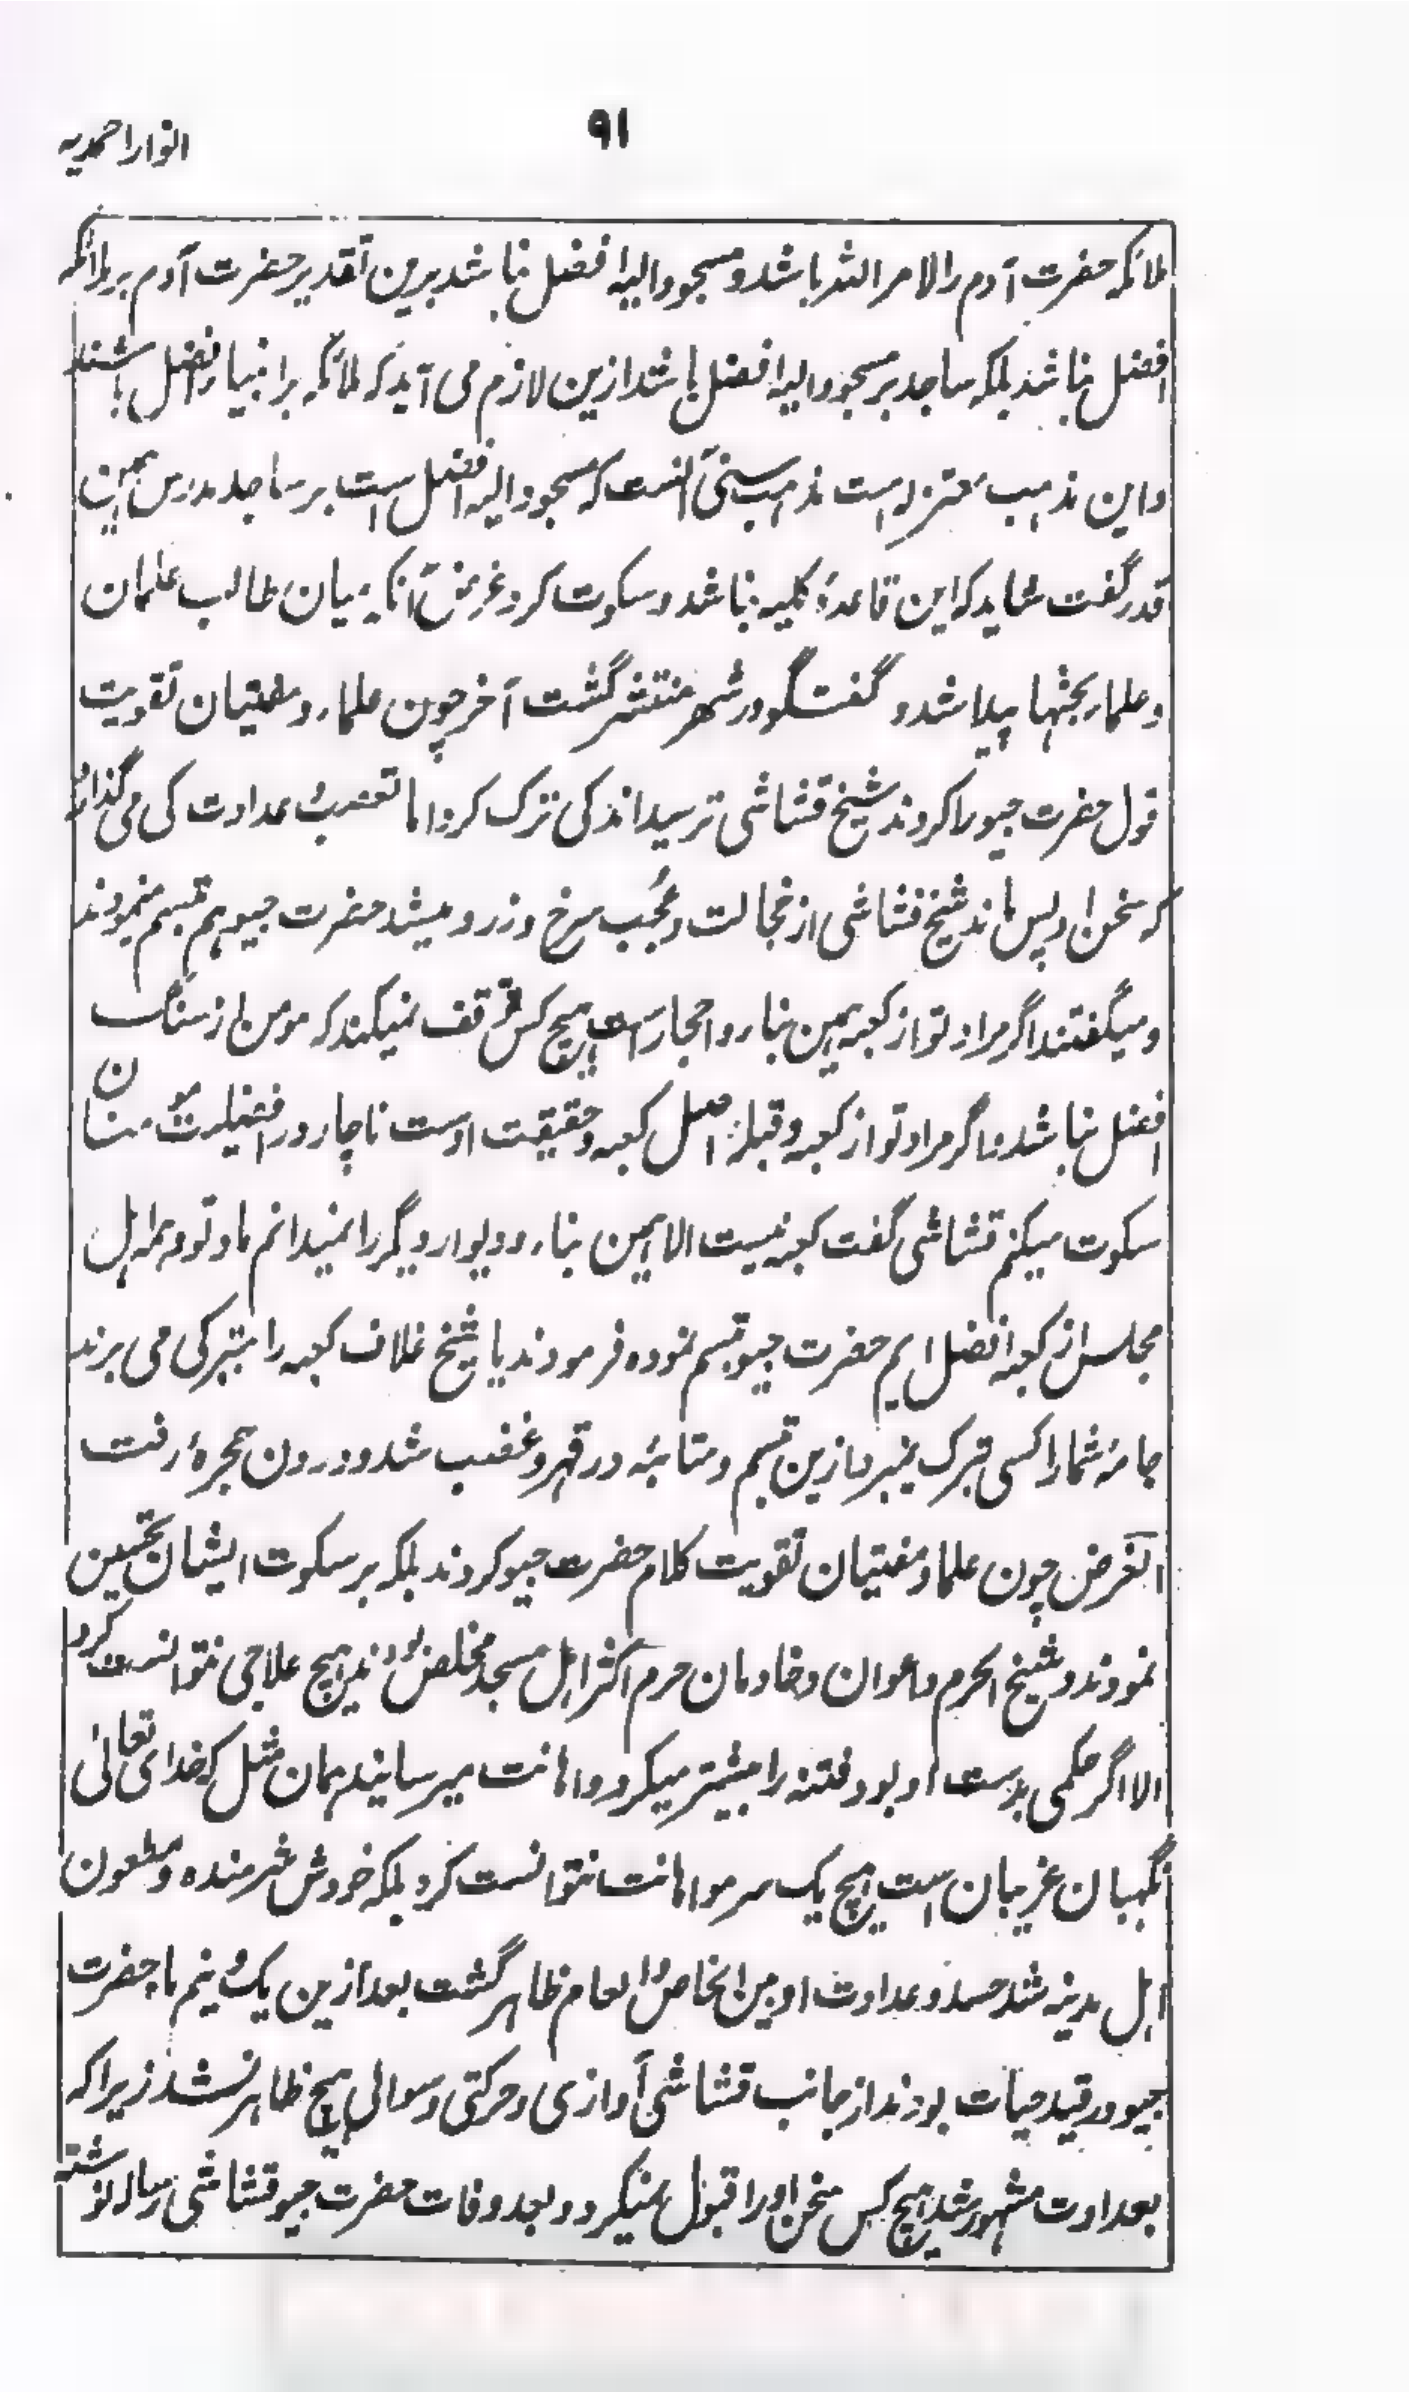 انوار احمدیہ
۹۱
ملائکہ حضرت آدم را لامر اللہ باشد و مسجود الیہ افضل نباشد برین تقدیر حضرت آدم بر ملائکہ
افضل نباشد بلکہ ساجد بر مسجود الیہ افضل باشد ازین لازم می آید کہ ملائکہ بر انبیا افضل باشند
و این مذہب معتزلہ است مذہب سنی آنست کہ مسجود الیہ افضل است بر ساجد مدرس ہمین
قدر گفت شاید کہ این قاعدۂ کلیہ نباشد و سکوت کرد غرض آنکہ میان طالب علمان
و علما بحثہا پیدا شد و گفتگو در شہر منتشر گشت آخر چون علماء و مفتیان تقویت
قول حضرت جیو را کردند شیخ قشاشی ترسید اندکی ترک کرد اما تعصب و عداوت کی می گذارد
کہ سخن او پس ماند شیخ قشاشی از خجالت و عُجب سرخ و زرد میشد حضرت جیو ہم تبسم مینمودند
و میگفتند اگر مراد تو از کعبہ ہمین بناء و احجار است ہیچ کس توقف نمیکند کہ مومن از سنگ
افضل نباشد و اگر مراد تو از کعبہ و قبلہ اصل کعبہ و حقیقت اوست ناچار در افضلیت مومنان
سکوت میکنم قشاشی گفت کعبہ نیست الا ہمین بناء و دیوار دیگر را نمیدانم ما و تو و ہمہ اہل
مجلس از کعبہ افضل ایم حضرت جیو تبسم نمودہ فرمودند یا شیخ غلاف کعبہ را بتبرکی می برند
جامۂ شما را کسی تبرک نمیبرد ازین تبسم و متابہ در قہر و غضب شد و درون حجرۂ رفت
الغرض چون علما و مفتیان تقویت کلام حضرت جیو کردند بلکہ بر سکوت ایشان تحسین
نمودند و شیخ الحرم و اعوان و خادمان حرم اکثر اہل مسجد مخلص بودند ہیچ علاجی نتوانست کرد
الا اگر حکمی بدست او بود فتنہ را بیشتر میکرد و اہانت میرسانید ہمان مثل کہ خدای تعالیٰ
نگہبان غریبان است ہیچ یک سر مو اہانت نتوانست کرد بلکہ خودش شرمندہ و مطعون
اہل مدینہ شد حسد و عداوت او بین الخاص و العام ظاہر گشت بعد ازین یک و نیم ماہ حضرت
جیو در قید حیات بودند از جانب قشاشی آوازی و حرکتی و سوالی ہیچ ظاہر نشد زیرا کہ
بعداوت مشہور شد ہیچ کس سخن او را قبول نمیکرد و بعد وفات حضرت جیو قشاشی رسالہ نوشتہ